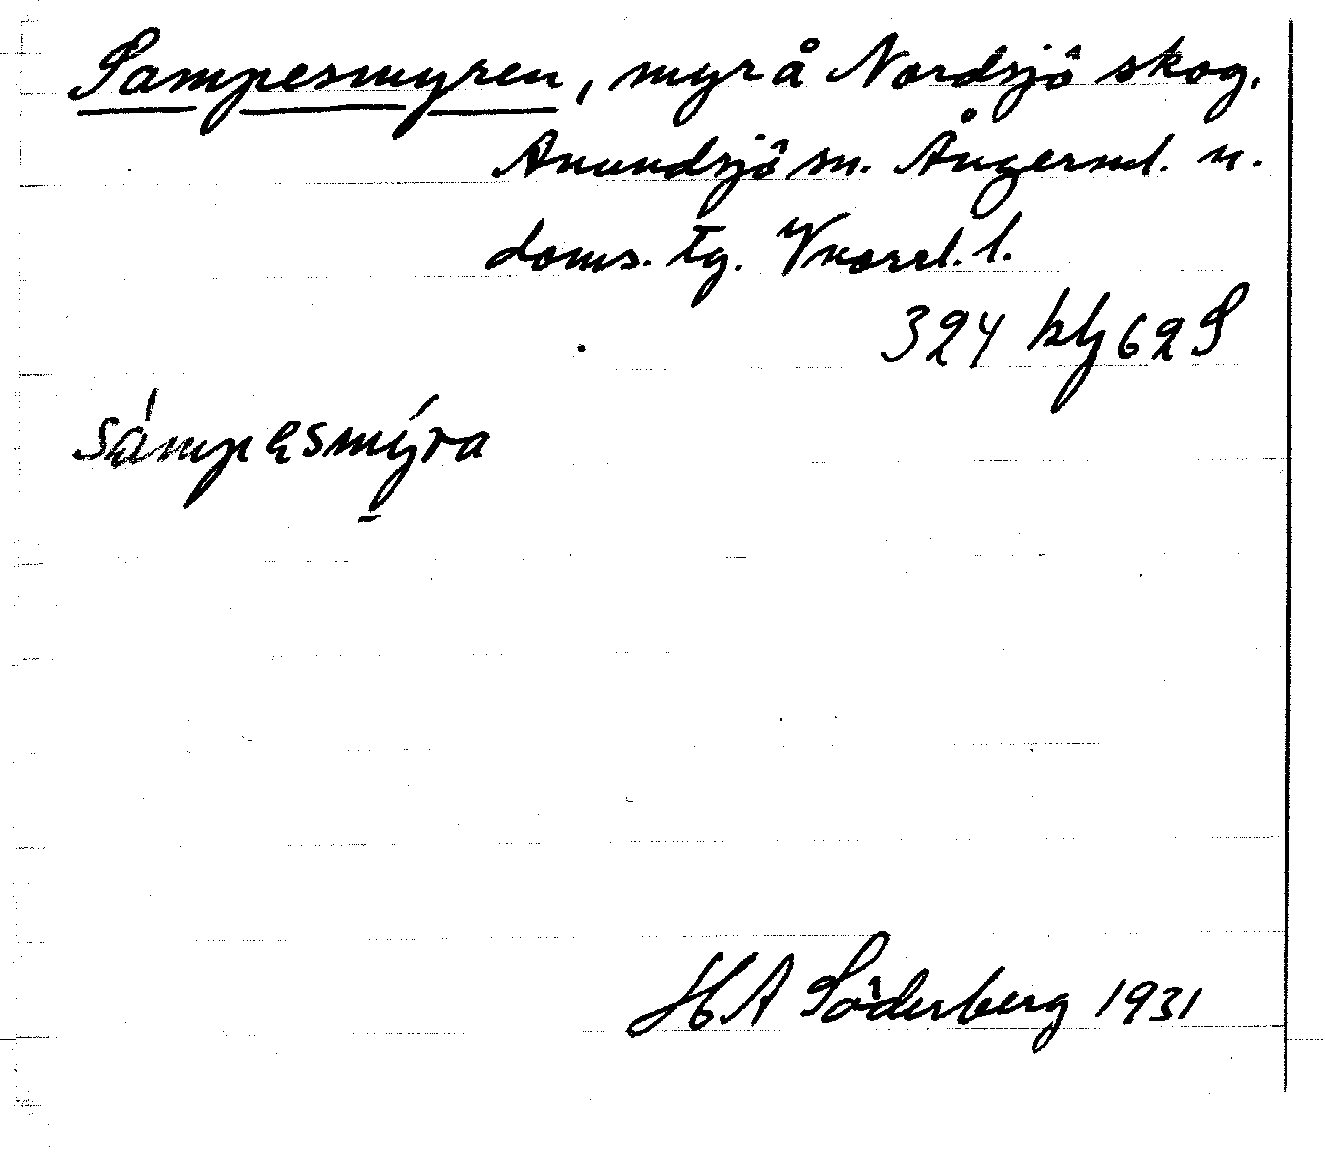 Sampesmyren, myr å Nordsjö skog.
Anundsjö sn. Ångerml. n.
doms. tg. Vnorrl. l.
324 klj 62 S
sámpesmýra
HA Söderberg 1931